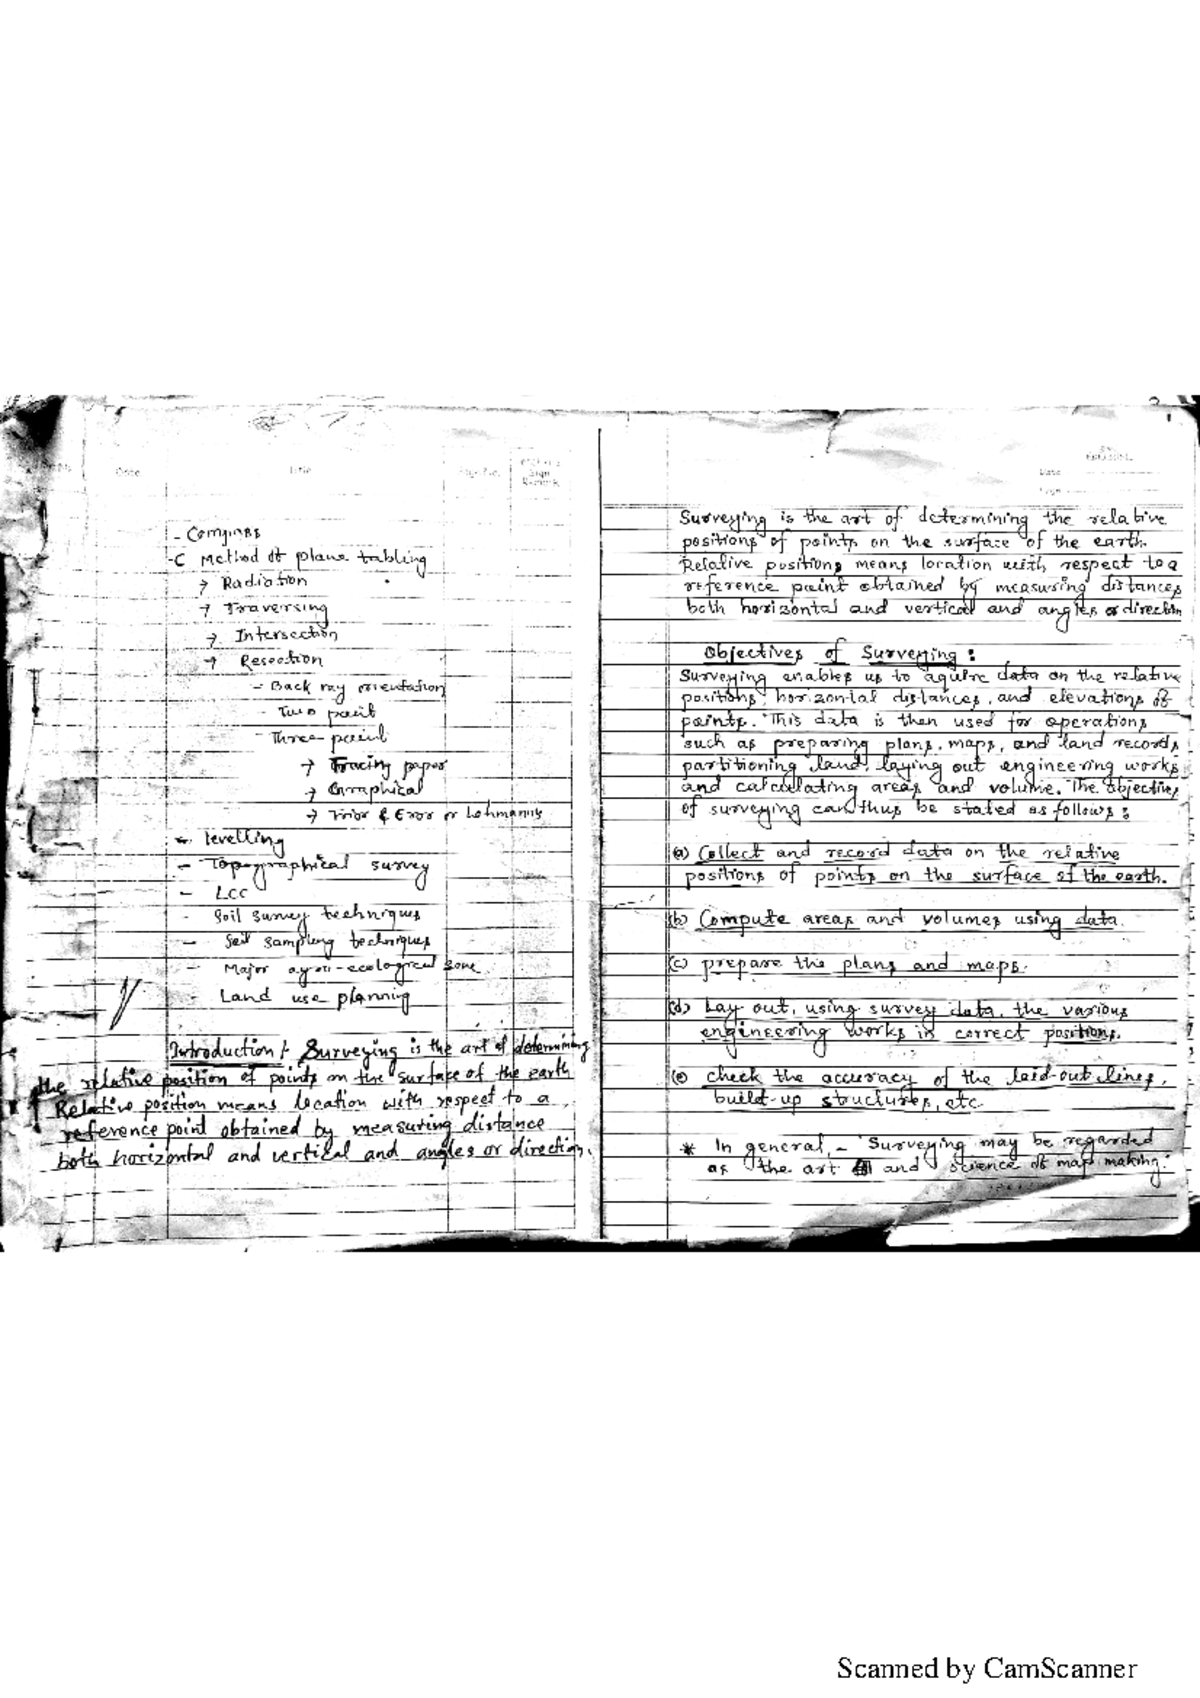 Date
Title
- Compass
-C Method of plane tabling
→ Radiation
→ Traversing
→ Intersection
→ Resection
- Back ray orientation
- Two point
- Three point
→ Tracing paper
→ Graphical
→ Trior & Error or Lehmanns
- levelling
- Topographical survey
- LCC
- Soil survey techniques
- Soil sampling techniques
- Major agro-ecological zone
- Land use planning
Introduction :- Surveying is the art of determining
the relative position of points on the surface of the earth
Relative position means location with respect to a
reference point obtained by measuring distance
both horizontal and vertical and angles or direction.
Date
Surveying is the art of determining the relative
positions of points on the surface of the earth.
Relative positions means location with respect to a
reference point obtained by measuring distances
both horizontal and vertical and angles or direction
Objectives of Surveying :
Surveying enables us to aquire data on the relative
positions, horizontal distances, and elevations of
points. This data is then used for operations
such as preparing plans, maps, and land records,
partitioning land, laying out engineering works
and calculating areas and volume. The objectives
of surveying can thus be stated as follows :
(a) Collect and record data on the relative
positions of points on the surface of the earth.
(b) Compute areas and volumes using data.
(c) prepare the plans and maps.
(d) Lay out, using survey data, the various
engineering works in correct positions.
(e) check the accuracy of the laid-out lines,
build-up structures, etc.
* In general, - Surveying may be regarded
as the art and science of map making.
Scanned by CamScanner